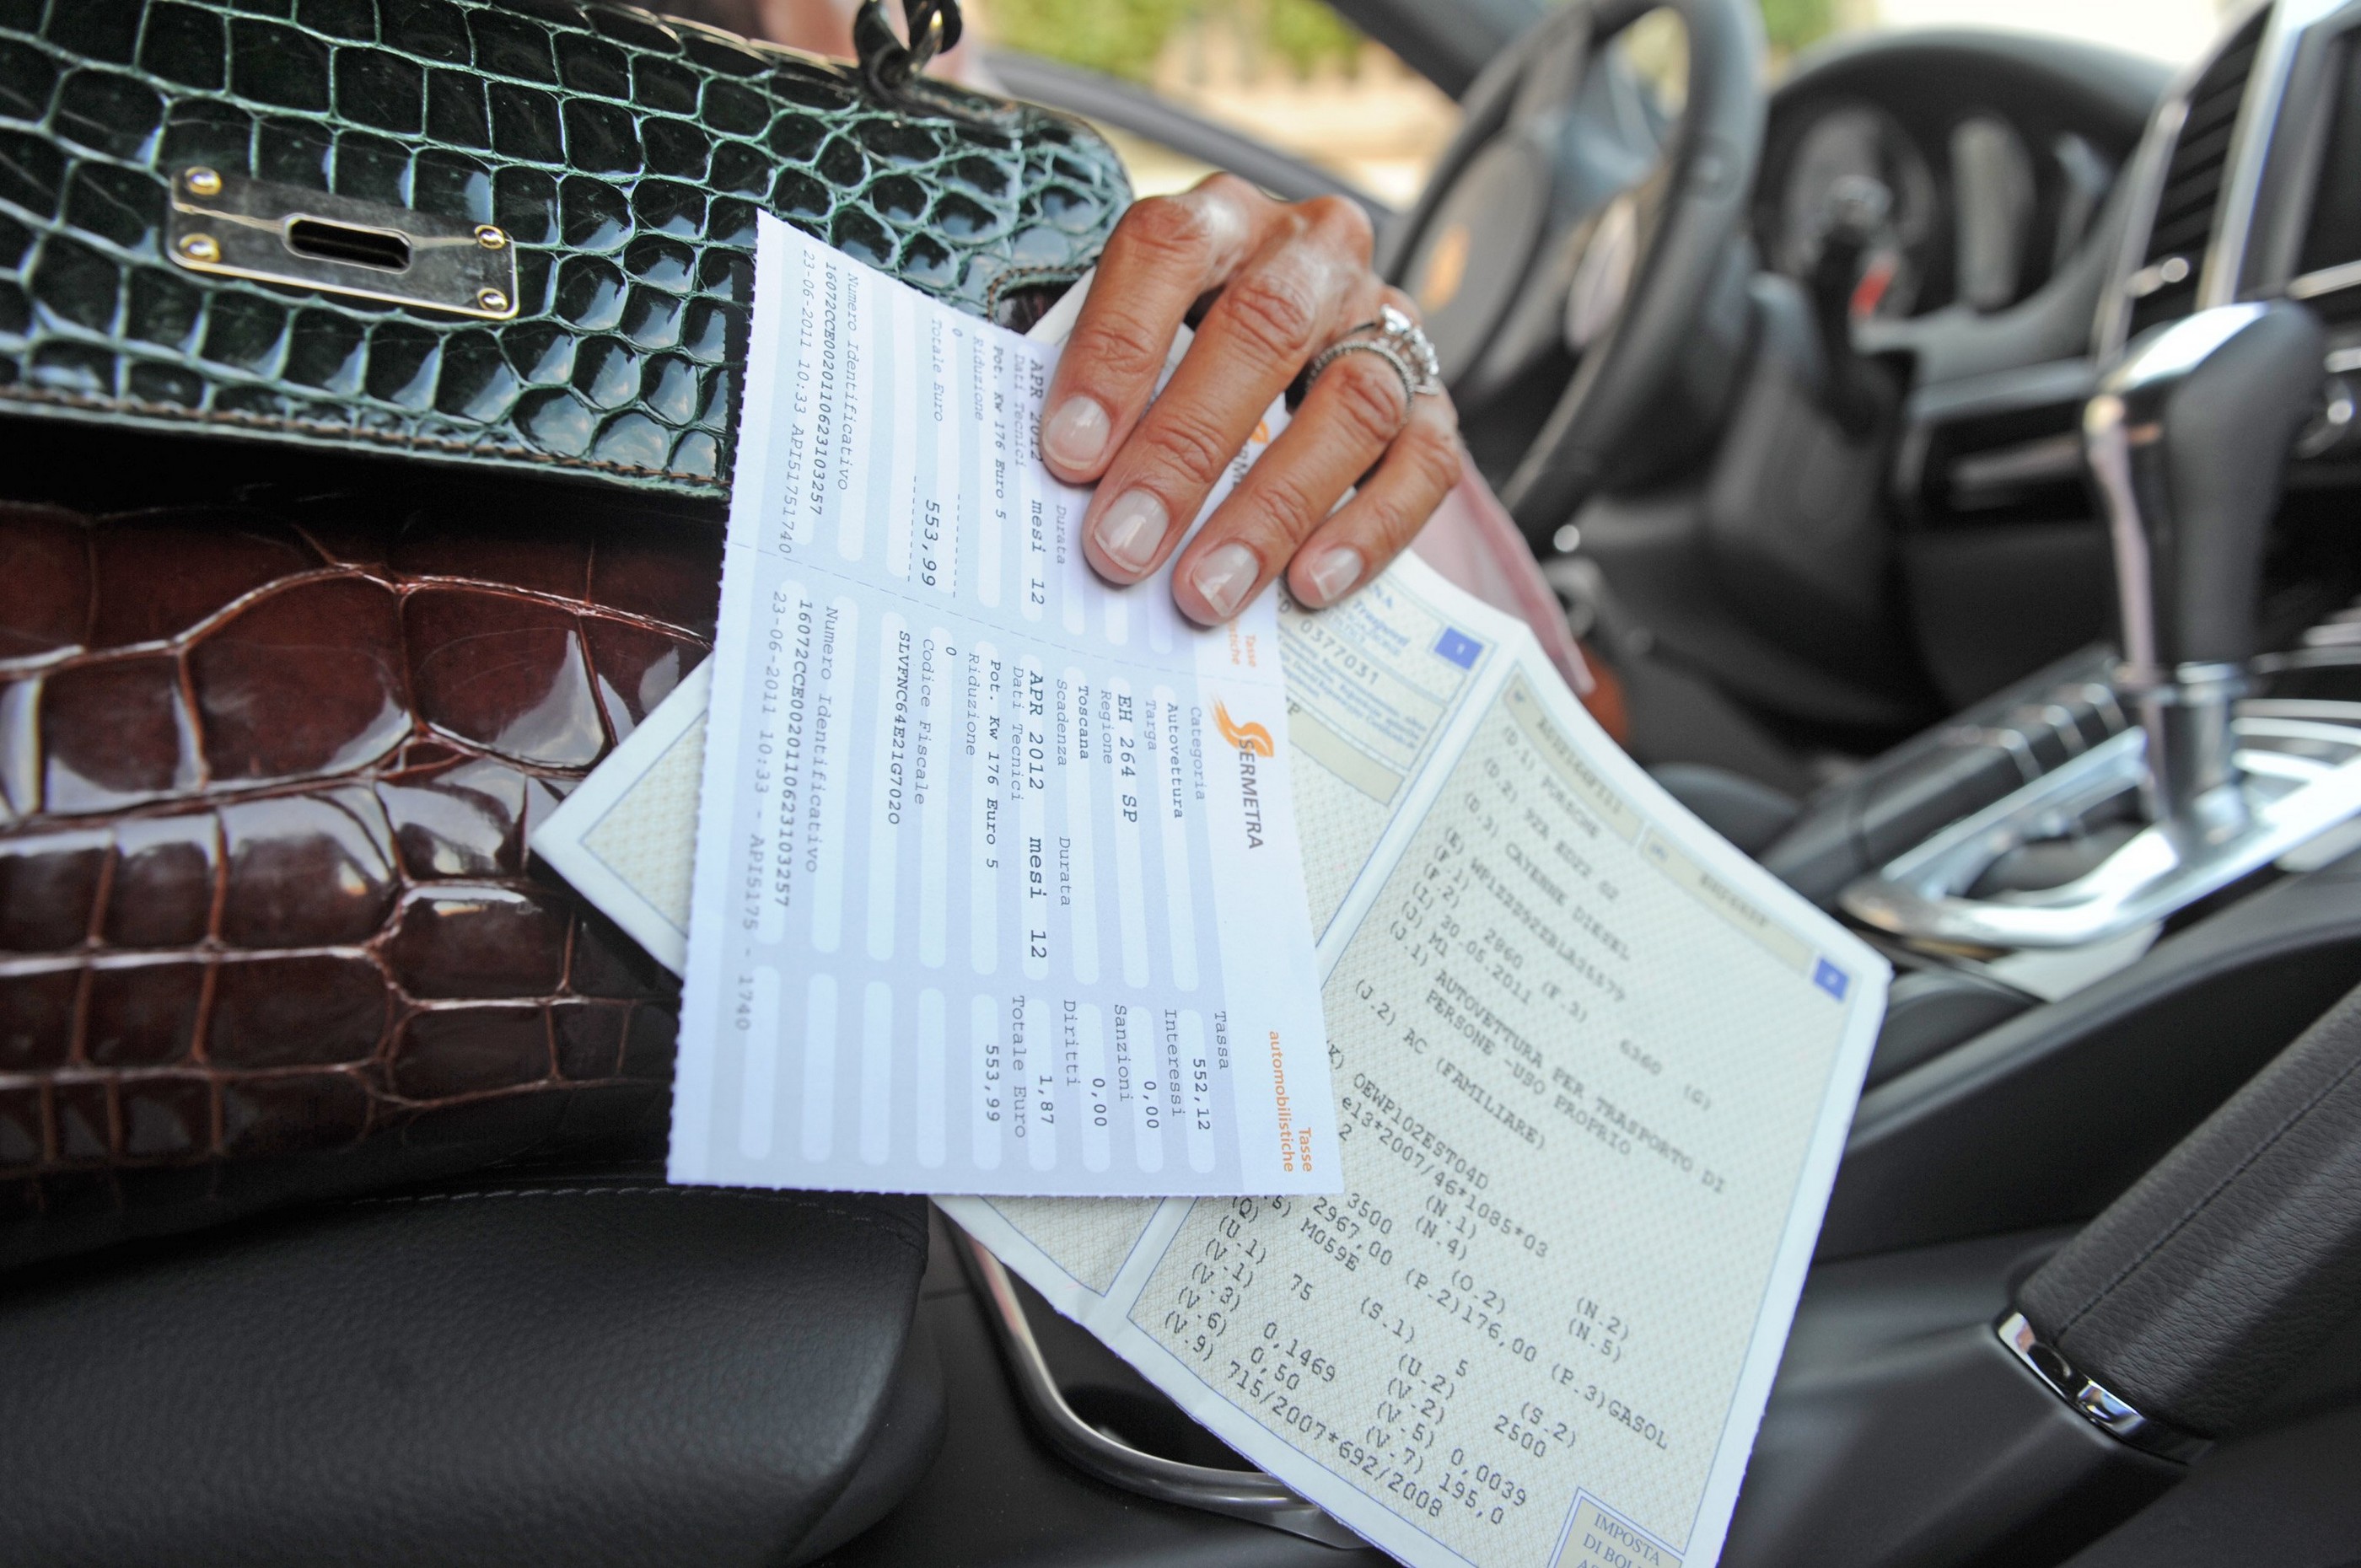 Numero Identificativo
16072CCE0020110623103257
23-06-2011 10:33 API51751740
APR 2012 mesi 12
Durata
Dati Tecnici
Pot. Kw 176 Euro 5
Riduzione
0
Totale Euro
553,99
SERMETRA
Tasse
automobilistiche
Categoria
Autovettura
Targa
EH 264 SP
Regione
Toscana
Scadenza Durata
APR 2012 mesi 12
Dati Tecnici
Pot. Kw 176 Euro 5
Riduzione
0
Codice Fiscale
SLVFNC64E21G702O
Numero Identificativo
16072CCE0020110623103257
23-06-2011 10:33 - API5175 - 1740
Tassa
552,12
Interessi
0,00
Sanzioni
0,00
Diritti
1,87
Totale Euro
553,99
Tasse
0377031
(D.1) PORSCHE
(D.2) 92A
(D.3) CAYENNE DIESEL
(E)
(F.1)
(F.2) 2860 (F.3) 6360 (G)
(I) 30.05.2011
(J) M1
(J.1) AUTOVETTURA PER TRASPORTO DI
PERSONE -USO PROPRIO
(J.2) AC (FAMILIARE)
OEWP102EST04D
e13*2007/46*1085*03
2 (N.1) (N.2)
3500 (N.4) (N.5)
(O.2)
2967,00 (P.2)176,00 (P.3)GASOL
M059E
(Q) (S.1) 5 (S.2)
(U.1) 75 (U.2) 2500
(V.1) (V.2)
(V.3) 0,1469 (V.5) 0,0039
(V.6) 0,50 (V.7) 195,0
(V.9) 715/2007*692/2008
IMPOSTA